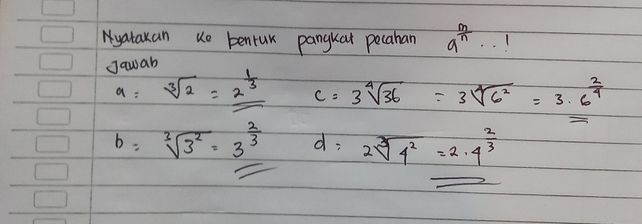 Nyatakan ke bentuk pangkat pecahan a^(m/n) ..!
Jawab
a = ∛2 = 2^(1/3) c = 3∜36 = 3∜6² = 3 . 6^(2/4)
b = ∛3² = 3^(2/3) d = 2∛4² = 2 . 4^(2/3)